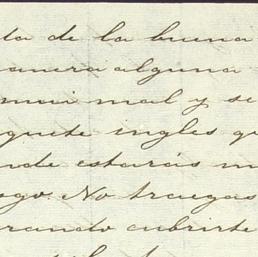 ta de la buena
anera alguna
mui mal y se
quete ingles q
nde estarás m
ego. No traigas
rando cubrirte